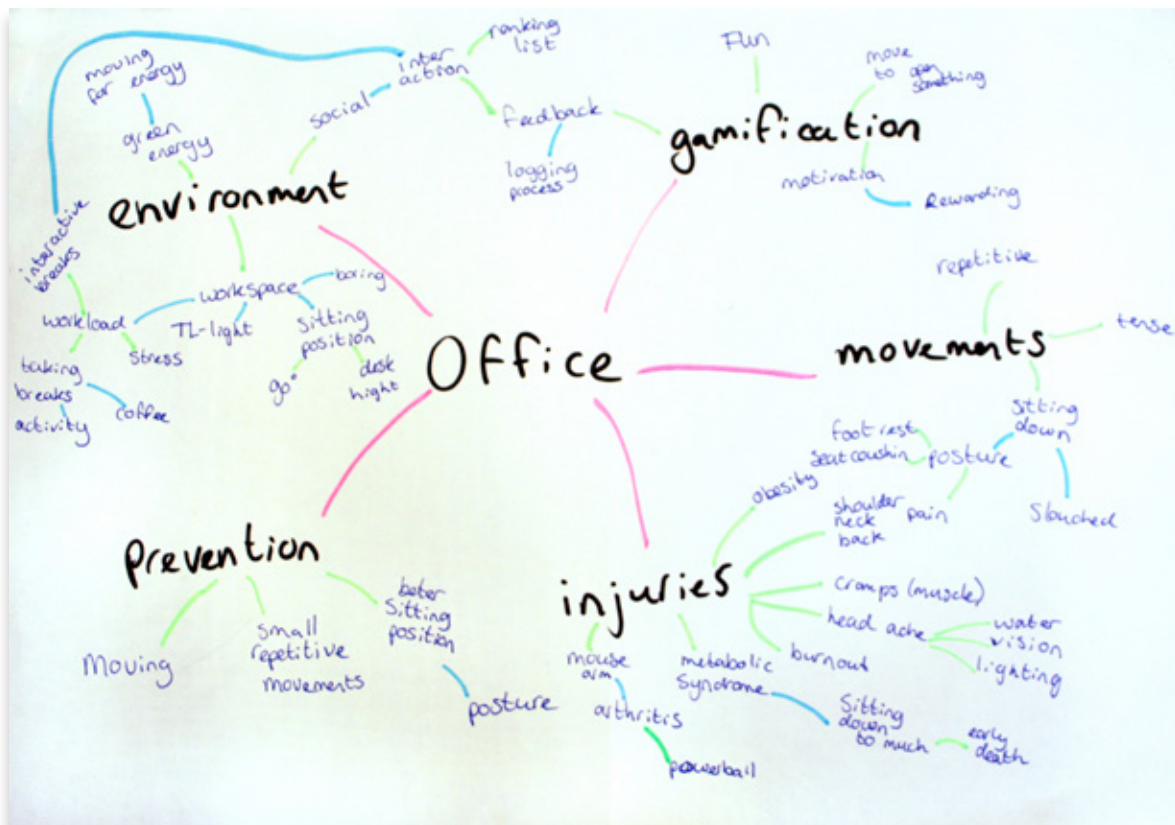 Office
environment
green
energy
moving
for energy
social
inter
action
ranking
list
feedback
logging
process
interactive
breaks
workspace
boring
TL-light
sitting
position
90°
desk
hight
workload
stress
taking
breaks
activity
coffee
gamification
Fun
move
to open
something
motivation
Rewarding
movements
repetitive
tense
sitting
down
posture
foot rest
seat coushin
pain
Slouched
injuries
obesity
shoulder
neck
back
cramps (muscle)
head ache
water
vision
lighting
burnout
metabolic
syndrome
Sitting
down
to much
early
death
mouse
arm
arthritis
powerball
Prevention
Moving
small
repetitive
movements
beter
sitting
position
posture